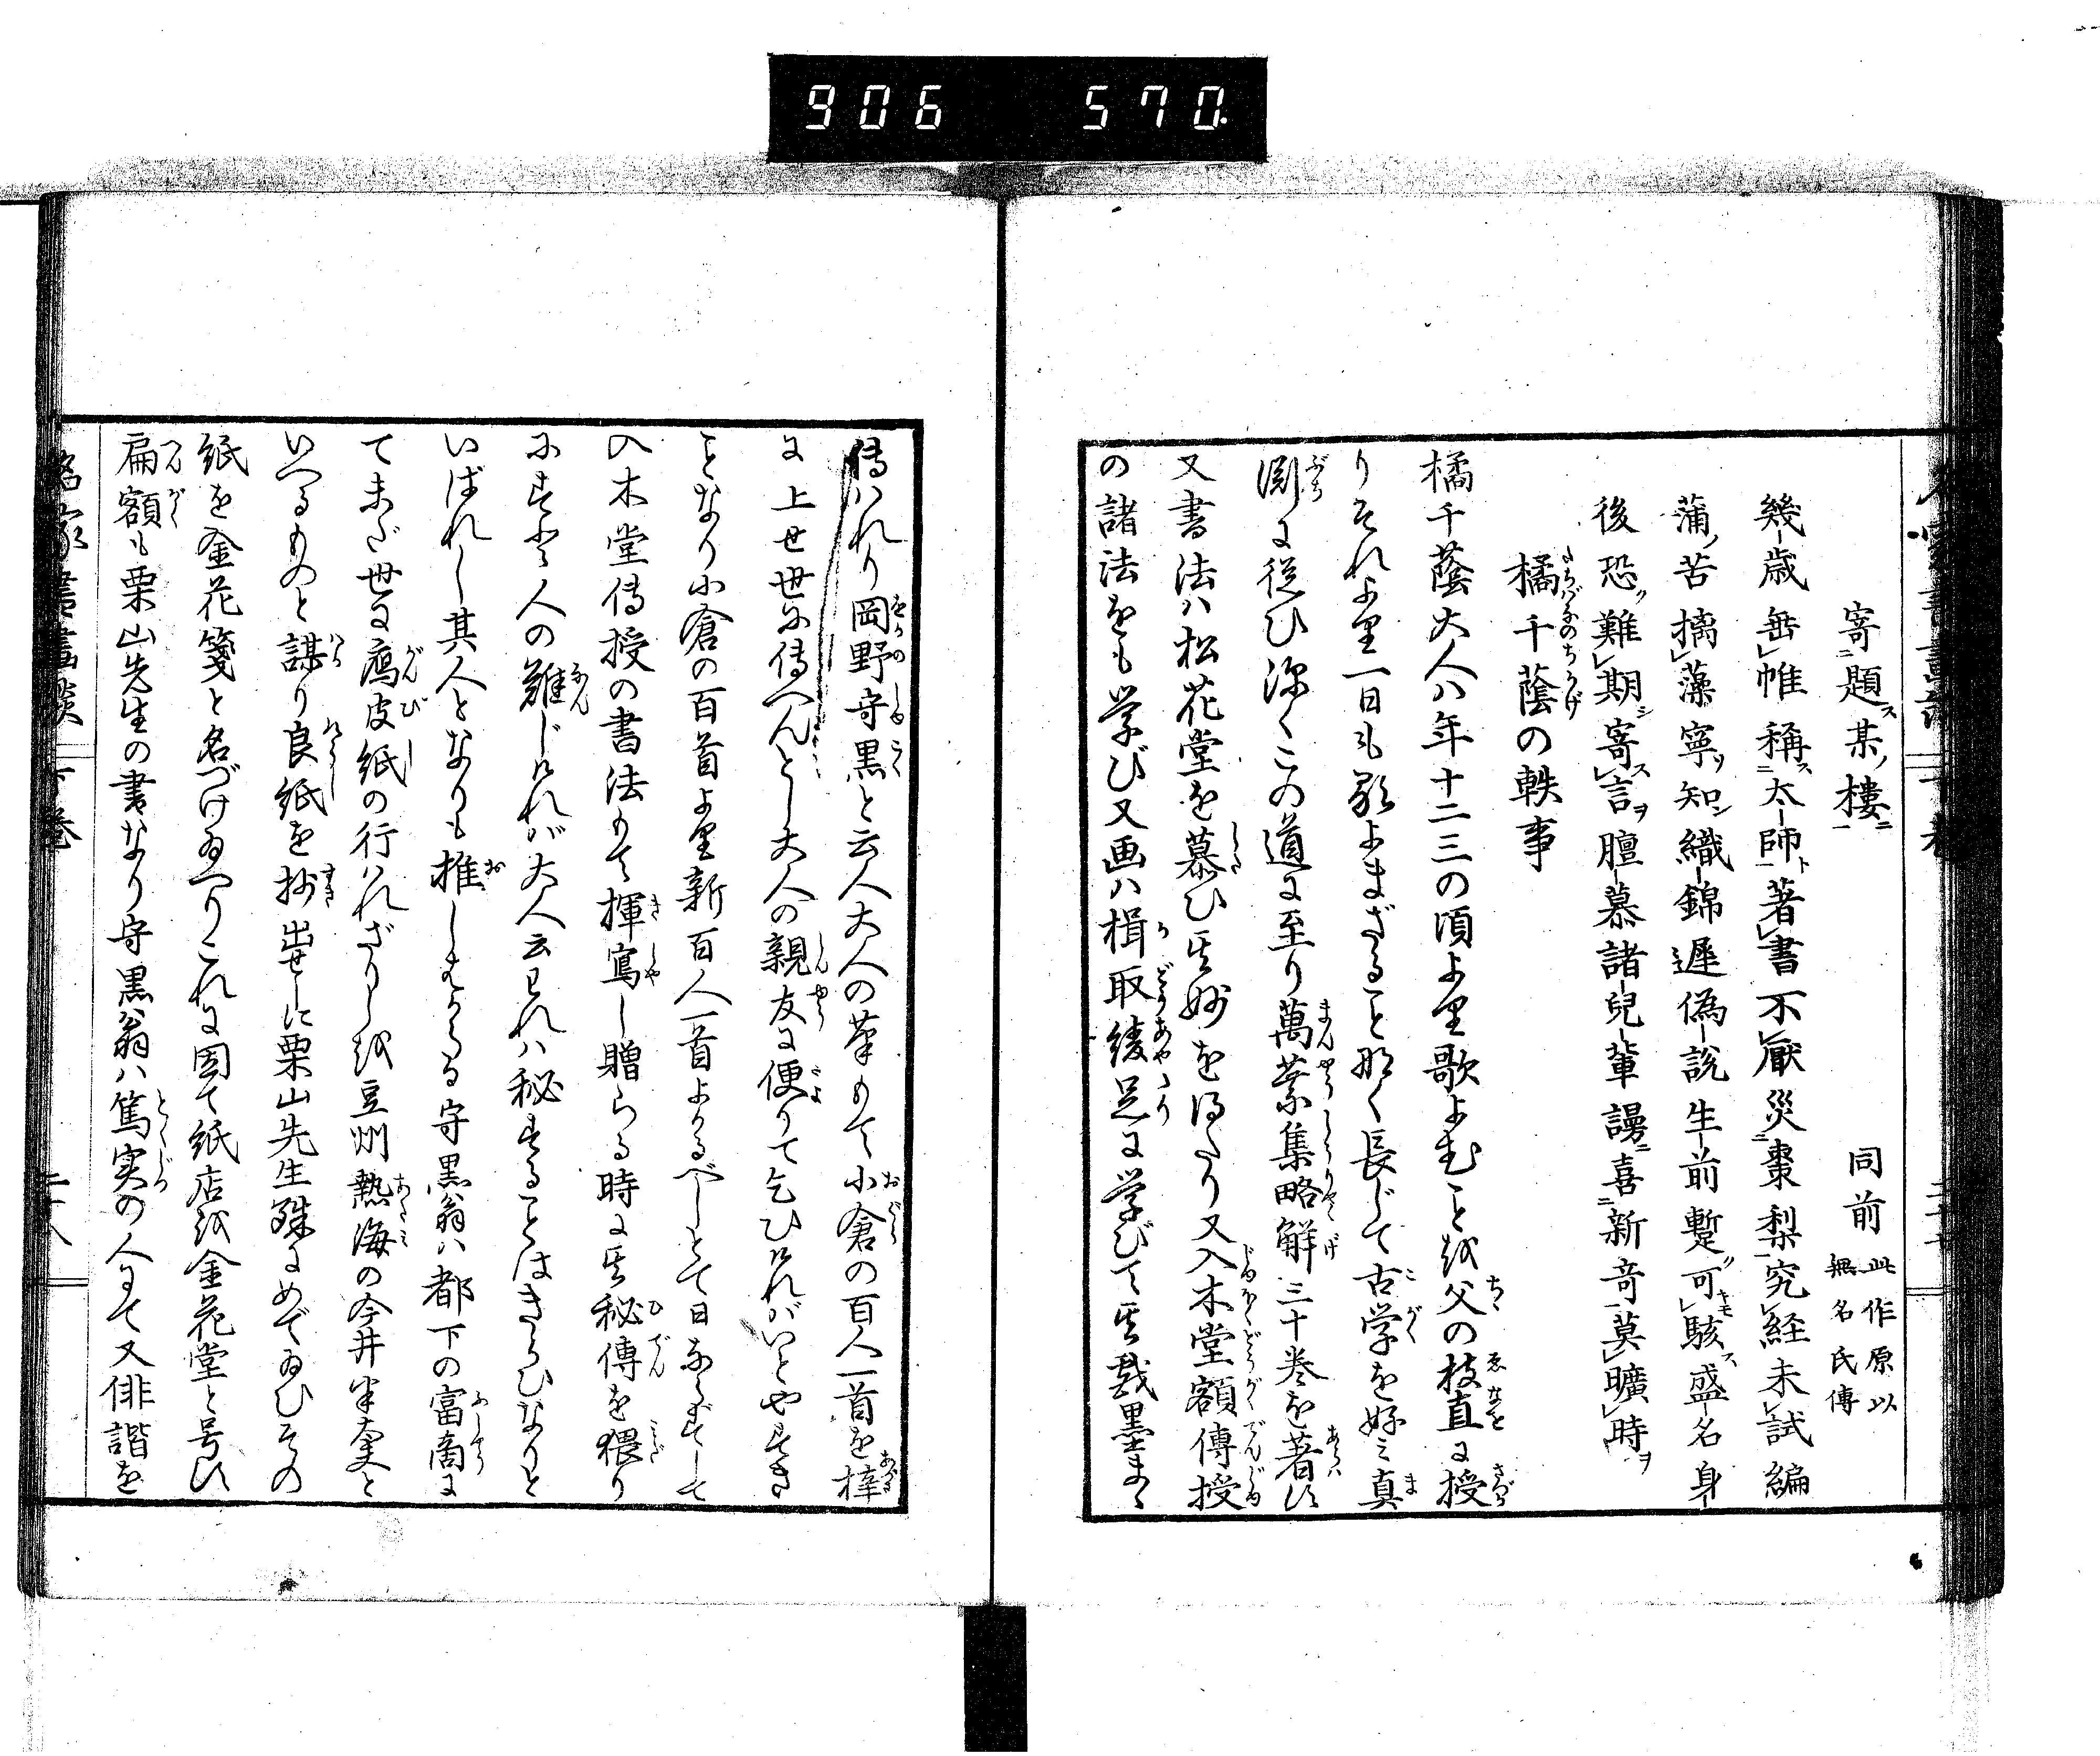 906 570
寄題某樓 同前 此作原以無名氏傳
幾歳垂帷稱太師著書不厭災棗梨究経未試編
蒲苦摛藻寧知織錦遅偽説生前蹔可駭盛名身
後恐難期寄言膻慕諸兒輩謾喜新竒莫曠時
橘千蔭の軼事
橘千蔭大人ハ年十二三の頃より歌よむこと越父の枝直に授
りそれより一日も歌よまざること那く長じて古学を好ミ真
渕に従ひ深くこの道に至り萬葉集略解三十巻を著ハす
又書法ハ松花堂を慕ひ其妙を得たり又入木堂額傳授
の諸法をも学び又画ハ楫取綾足に学びて其戯墨まゝ
傳ハれり岡野守黒と云人大人の筆もて小倉の百人一首を梓
に上せ世に傳へんとし大人の親友に便りて乞ひけれバいとやすき
ことなり小倉の百首より新百人一首よかるべしとて日ならずして
入木堂傳授の書法もて揮寫し贈らる時に其秘傳を猥り
にすと人の難じけれバ大人云われハ秘することはきらひなりと
いはれし其人となりも推しはからる守黒翁ハ都下の富商に
て未だ世に鴈皮紙の行ハれざりし越豆州熱海の今井半太夫と
いへるものと謀り良紙を抄出せしに栗山先生殊にめで給ひその
紙を金花箋と名づけ給へりこれに因て紙店越金花堂と号す
扁額も栗山先生の書なり守黒翁ハ篤実の人にて又俳諧を
名家書畫談 下巻 二十八